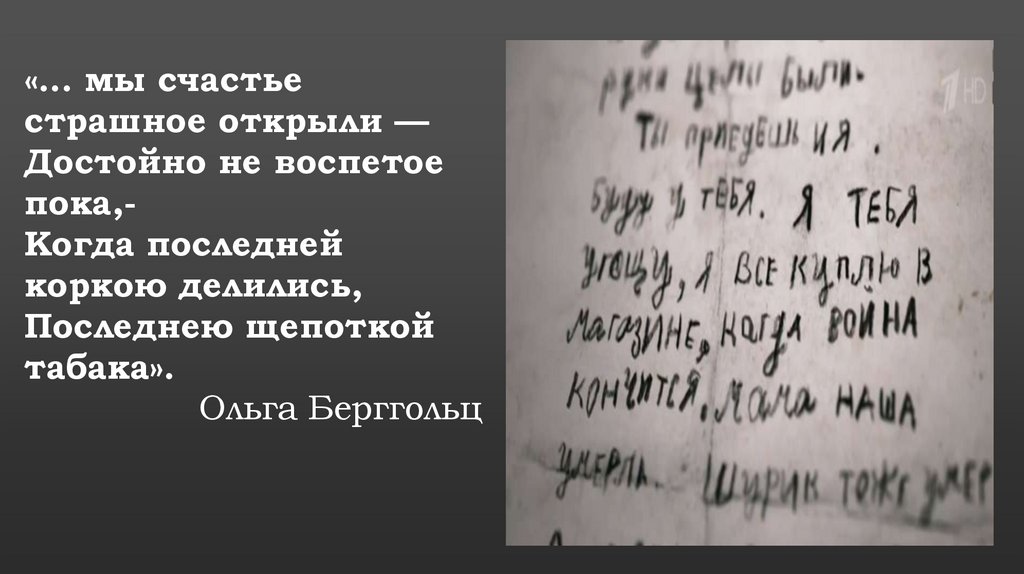 «… мы счастье
страшное открыли —
Достойно не воспетое
пока,-
Когда последней
коркою делились,
Последнею щепоткой
табака».
Ольга Берггольц
цели были.
Ты приедешь и я.
Буду у тебя. Я ТЕБЯ
угощу, я ВСЕ куплю В
магазИНЕ, когда ВОЙНА
кончится. Мама НАША
умерла. Шурик тоже умер
1 HD